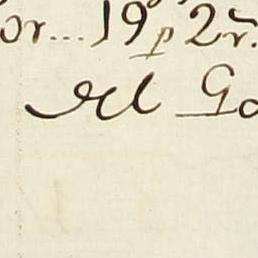 or... 19 p 2r.
del Go